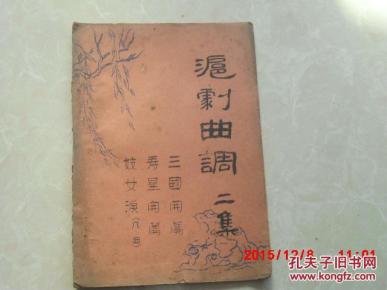 滬劇曲調
二集
三國開篇
壽星開篇
妓女淚
2015/12/8 11:01
孔夫子旧书网
www.kongfz.com